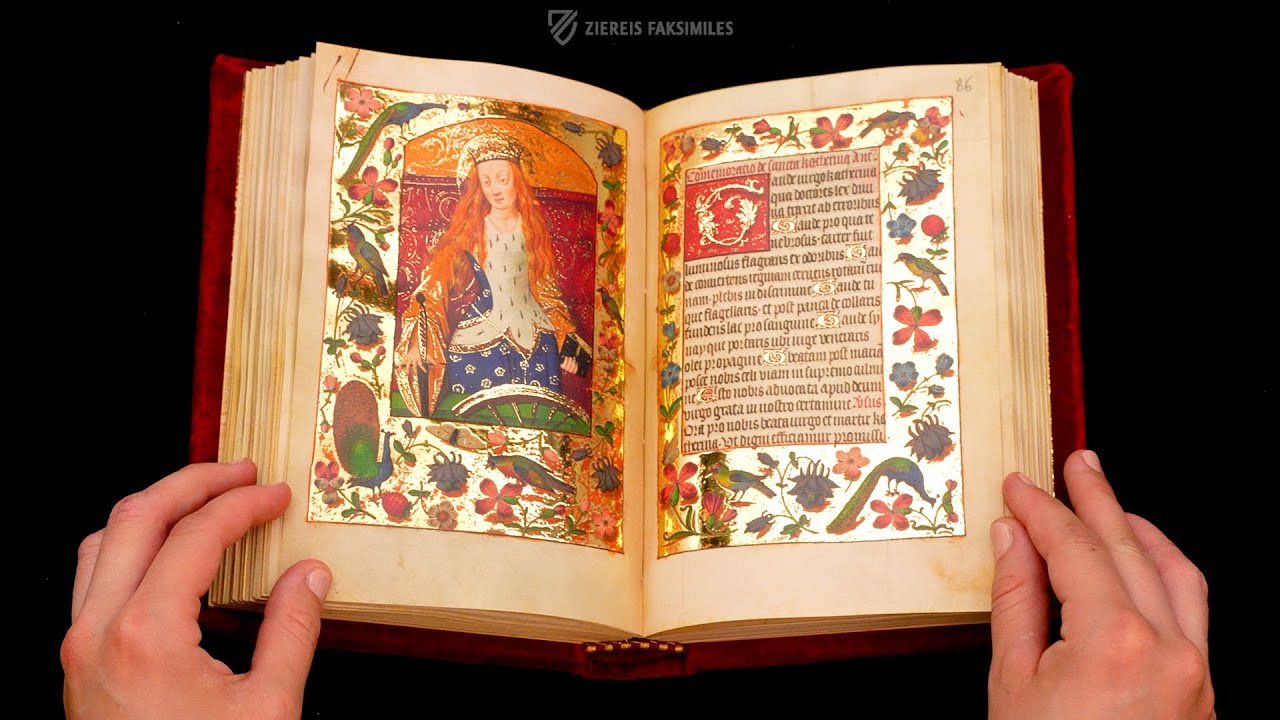 ZIEREIS FAKSIMILES
86
Comemoracio de sancta katherina Ant.
Gaude virgo katherina
qua doctores lex divi
na traxit ab erroribus
Gaude pro qua te
nebrosus carcer fuit
luminosus flagrans ex odoribus Gau
de convertens reginam
nam plebis in discrimine Gaude tu
que flagellaris et post panca de collaris
fundens lac pro sanguine Gaude sy
nay que portaris ubi iuge
olei propagine O beatam post mariam
posce nobis celi viam in supremo culmi
ne Esto nobis advocata apud deum
virgo grata in nostro certamine
Ora pro nobis beata virgo et martir ka
therina Ut digni efficiamur promissi